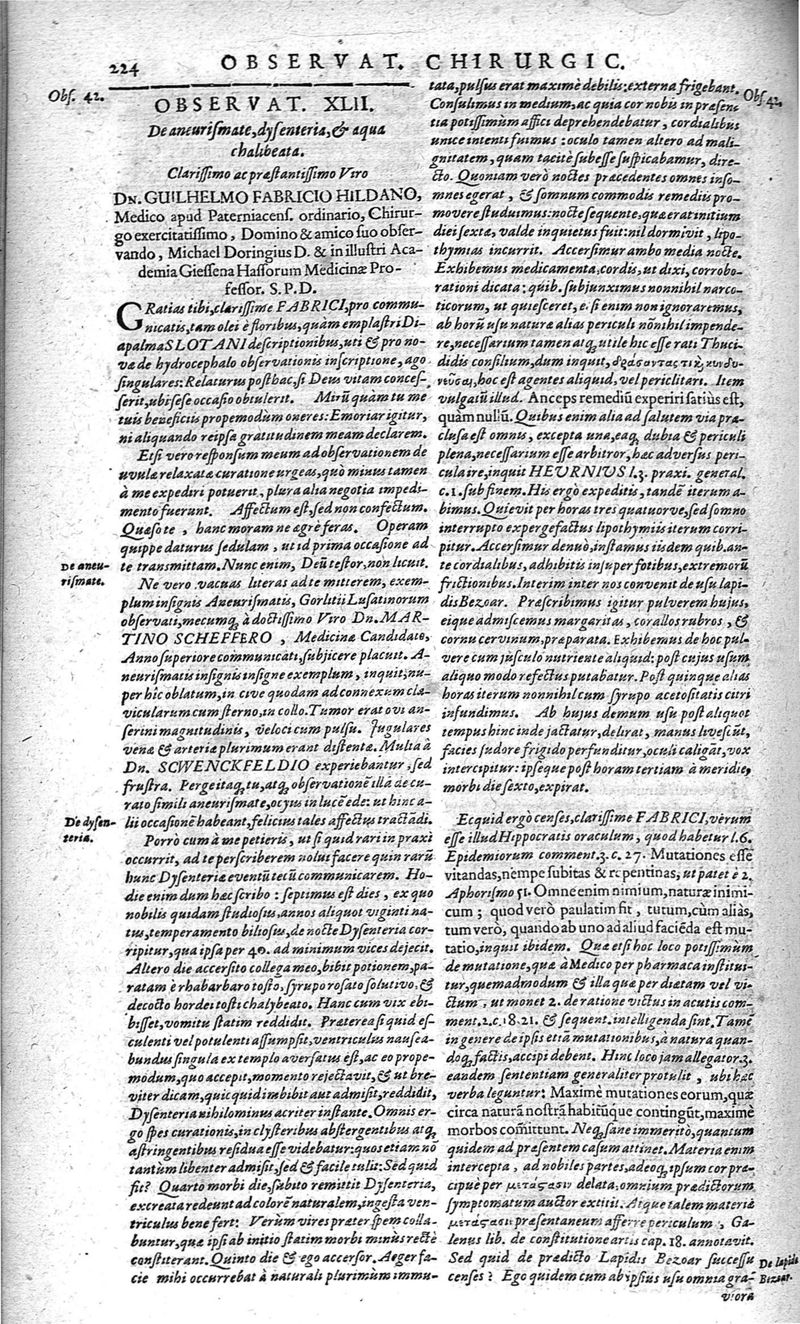 224
OBSERVAT. CHIRURGIC.
Obs. 42.
OBSERVAT. XLII.
De aneurismate, dysenteria, & aqua
chalibeata.
Clarissimo ac præstantissimo Viro
DN. GUILHELMO FABRICIO HILDANO,
Medico apud Paterniacens. ordinario, Chirur-
go exercitatissimo, Domino & amico suo obser-
vando, Michael Doringius D. & in illustri Aca-
demia Giessena Hassorum Medicinæ Pro-
fessor. S. P. D.
GRatias tibi, clarissime FABRICI, pro commu-
nicatis, tam olei è floribus, quàm emplastri Di-
apalma SLOTANI descriptionibus, uti & pro no-
va de hydrocephalo observationis inscriptione, ago
singulares: Relaturus posthac, si Deus vitam conces-
serit, ubi sese occasio obtulerit. Mirũ quàm tu me
tuis beneficiis propemodum oneres: Emoriar igitur,
ni aliquando reipsa gratitudinem meam declarem.
Etsi vero responsum meum ad observationem de
uvulæ relaxatæ curatione urgeas, quò minus tamen
à me expediri potuerit, plura alia negotia impedi-
mento fuerunt. Affectum est, sed non confectum.
Quæso te, hanc moram ne ægrè feras. Operam
quippe daturus sedulam, ut id prima occasione ad
te transmittam. Nunc enim, Deũ testor, non licuit.
De aneu-
rismate.
Ne vero vacuas literas ad te mitterem, exem-
plum insignis Aneurismatis, Gorlitii Lusatinorum
observati, mecumq; à doctissimo Viro Dn. MAR-
TINO SCHEFFERO, Medicinæ Candidato,
Anno superiore communicati, subjicere placuit. A-
neurismatis insignis insigne exemplum, inquit, nu-
per hîc oblatum, in cive quodam ad connexum cla-
vicularum cum sterno, in collo. Tumor erat ovi an-
serini magnitudinis, veloci cum pulsu. Jugulares
venæ & arteriæ plurimum erant distentæ. Multa à
Dn. SCHWENCKFELDIO experiebantur, sed
frustra. Perge itaq; tu, atq; observationẽ illã de cu-
rato simili aneurismate, ocyus in lucẽ ede: ut hinc a-
lii occasionẽ habeant, felicius tales affectus tractãdi.
De dysen-
teria.
Porrò cum à me petieris, ut si quid rari in praxi
occurrit, ad te perscriberem nolui facere quin rarũ
hunc Dysenteriæ eventũ tecũ communicarem. Ho-
die enim dum hæc scribo: septimus est dies, ex quo
nobilis quidam studiosus, annos aliquot viginti na-
tus, temperamento biliosus, de nocte Dysenteria cor-
ripitur, qua ipsa per 40. ad minimum vices dejecit.
Altero die accersito collega meo, bibit potionem, pa-
ratam è rhabarbaro tosto, syrupo rosato solutivo, &
decocto hordei tosti chalybeato. Hanc cum vix ebi-
bisset, vomitu statim reddidit. Præterea si quid es-
culenti vel potulenti assumpsit, ventriculus nausea-
bundus singula ex templo aversatus est, ac eo prope-
modum, quo accepit, momento rejectavit, & ut bre-
viter dicam, quicquid imbibit aut admisit, reddidit,
Dysenteria nihilominus acriter instante. Omnis er-
go spes curationis, in clysteribus abstergentibus atq;
astringentibus residua esse videbatur: quos etiam nõ
tantùm libenter admisit, sed & facile tulit: Sed quid
fit? Quarto morbi die, subito remittit Dysenteria,
excreata redeunt ad colorẽ naturalem, ingesta ven-
triculus bene fert: Verùm vires præter spem colla-
buntur, quæ ipsi ab initio statim morbi minùs rectè
constiterant. Quinto die & ego accersor. Æger fa-
cie mihi occurrebat à naturali plurimùm immu-
Obs. 42.
tata, pulsus erat maximè debilis: externa frigebant.
Consulimus in medium, ac quia cor nobis in præsen-
tia potissimùm affici deprehendebatur, cordialibus
unicè intenti fuimus: oculo tamen altero ad mali-
gnitatem, quam tacitè subesse suspicabamur, dire-
cto. Quoniam verò noctes præcedentes omnes inso-
mnes egerat, & somnum commodis remediis pro-
movere studuimus: nocte sequente, quæ erat initium
diei sextæ, valde inquietus fuit: nil dormivit, lipo-
thymias incurrit. Accersimur ambo media nocte.
Exhibemus medicamenta, cordis, ut dixi, corrobo-
rationi dicata: quib. subjunximus nonnihil narco-
ticorum, ut quiesceret, etsi enim non ignoraremus,
ab horũ usu naturæ alias periculi nõnihil impende-
re, necessarium tamen atq; utile hic esse rati Thuci-
didis consilium, dum inquit, δράσαντας τὶ κινδυ-
νεῦσαι, hoc est agentes aliquid, vel periclitari. Item
vulgatũ illud. Anceps remediũ experiri satiùs est,
quàm nullũ. Quibus enim alia ad salutem via præ-
clusa est omnis, excepta una, eaq; dubia & periculi
plena, necessarium esse arbitror, hac adversus peri-
cula ire, inquit HEURNIUS l. 3. praxi. general.
c. 1. sub finem. His ergò expeditis, tandẽ iterum a-
bimus. Quievit per horas tres quatuorve, sed somno
interrupto expergefactus lipothymiis iterum corri-
pitur. Accersimur denuò, instamus iisdem quib. an-
te cordialibus, adhibitis insuper fotibus, extremorũ
frictionibus. Interim inter nos convenit de usu lapi-
dis Bezoar. Præscribimus igitur pulverem hujus,
eique admiscemus margaritas, corallos rubros, &
cornu cervinum, præparata. Exhibemus de hoc pul-
vere cum jusculo nutriente aliquid: post cujus usum
aliquo modo refectus putabatur. Post quinque alias
horas iterum nonnihil cum syrupo acetositatis citri
infundimus. Ab hujus demum usu post aliquot
tempus hinc inde jactatur, delirat, manus livescũt,
facies sudore frigido perfunditur, oculi caligãt, vox
intercipitur: ipseque post horam tertiam à meridie,
morbi die sexto, expirat.
Ecquid ergò censes, clarissime FABRICI, verum
esse illud Hippocratis oraculum, quod habetur l. 6.
Epidemiorum comment. 3. c. 27. Mutationes esse
vitandas, nempe subitas & repentinas, ut patet è 2.
Aphorismo 51. Omne enim nimium, naturæ inimi-
cum; quod verò paulatim fit, tutum, cùm aliàs,
tum verò, quando ab uno ad aliud faciẽda est mu-
tatio, inquit ibidem. Quæ etsi hoc loco potissimùm
de mutatione, quæ à Medico per pharmaca institui-
tur, quemadmodum & illa quæ per diætam vel vi-
ctum, ut monet 2. de ratione victus in acutis com-
ment. 2. c. 18. 21. & sequent. intelligenda sint. Tamẽ
in genere de ipsis etiã mutationibus, à natura quan-
doq; factis, accipi debent. Hinc loco jam allegato r. 3.
eandem sententiam generaliter protulit, ubi hæc
verba leguntur: Maximè mutationes eorum, quæ
circa naturã nostrã habitũque contingũt, maximè
morbos cõmittunt. Neq; sane immeritò, quantum
quidem ad præsentem casum attinet. Materia enim
intercepta, ad nobiles partes, adeoq; ipsum cor præ-
cipuè per μετάςασιν delata, omnium prædictorum
symptomatum auctor extitit. Atque talem materiæ
μετάςασιν præsentaneum afferre periculum, Ga-
lenus lib. de constitutione artis cap. 18. annotavit.
Sed quid de prædicto Lapidis Bezoar successu
censes? Ego quidem cum ab ipsius usu omnia gra-
De lapide
Bezoar.
viora